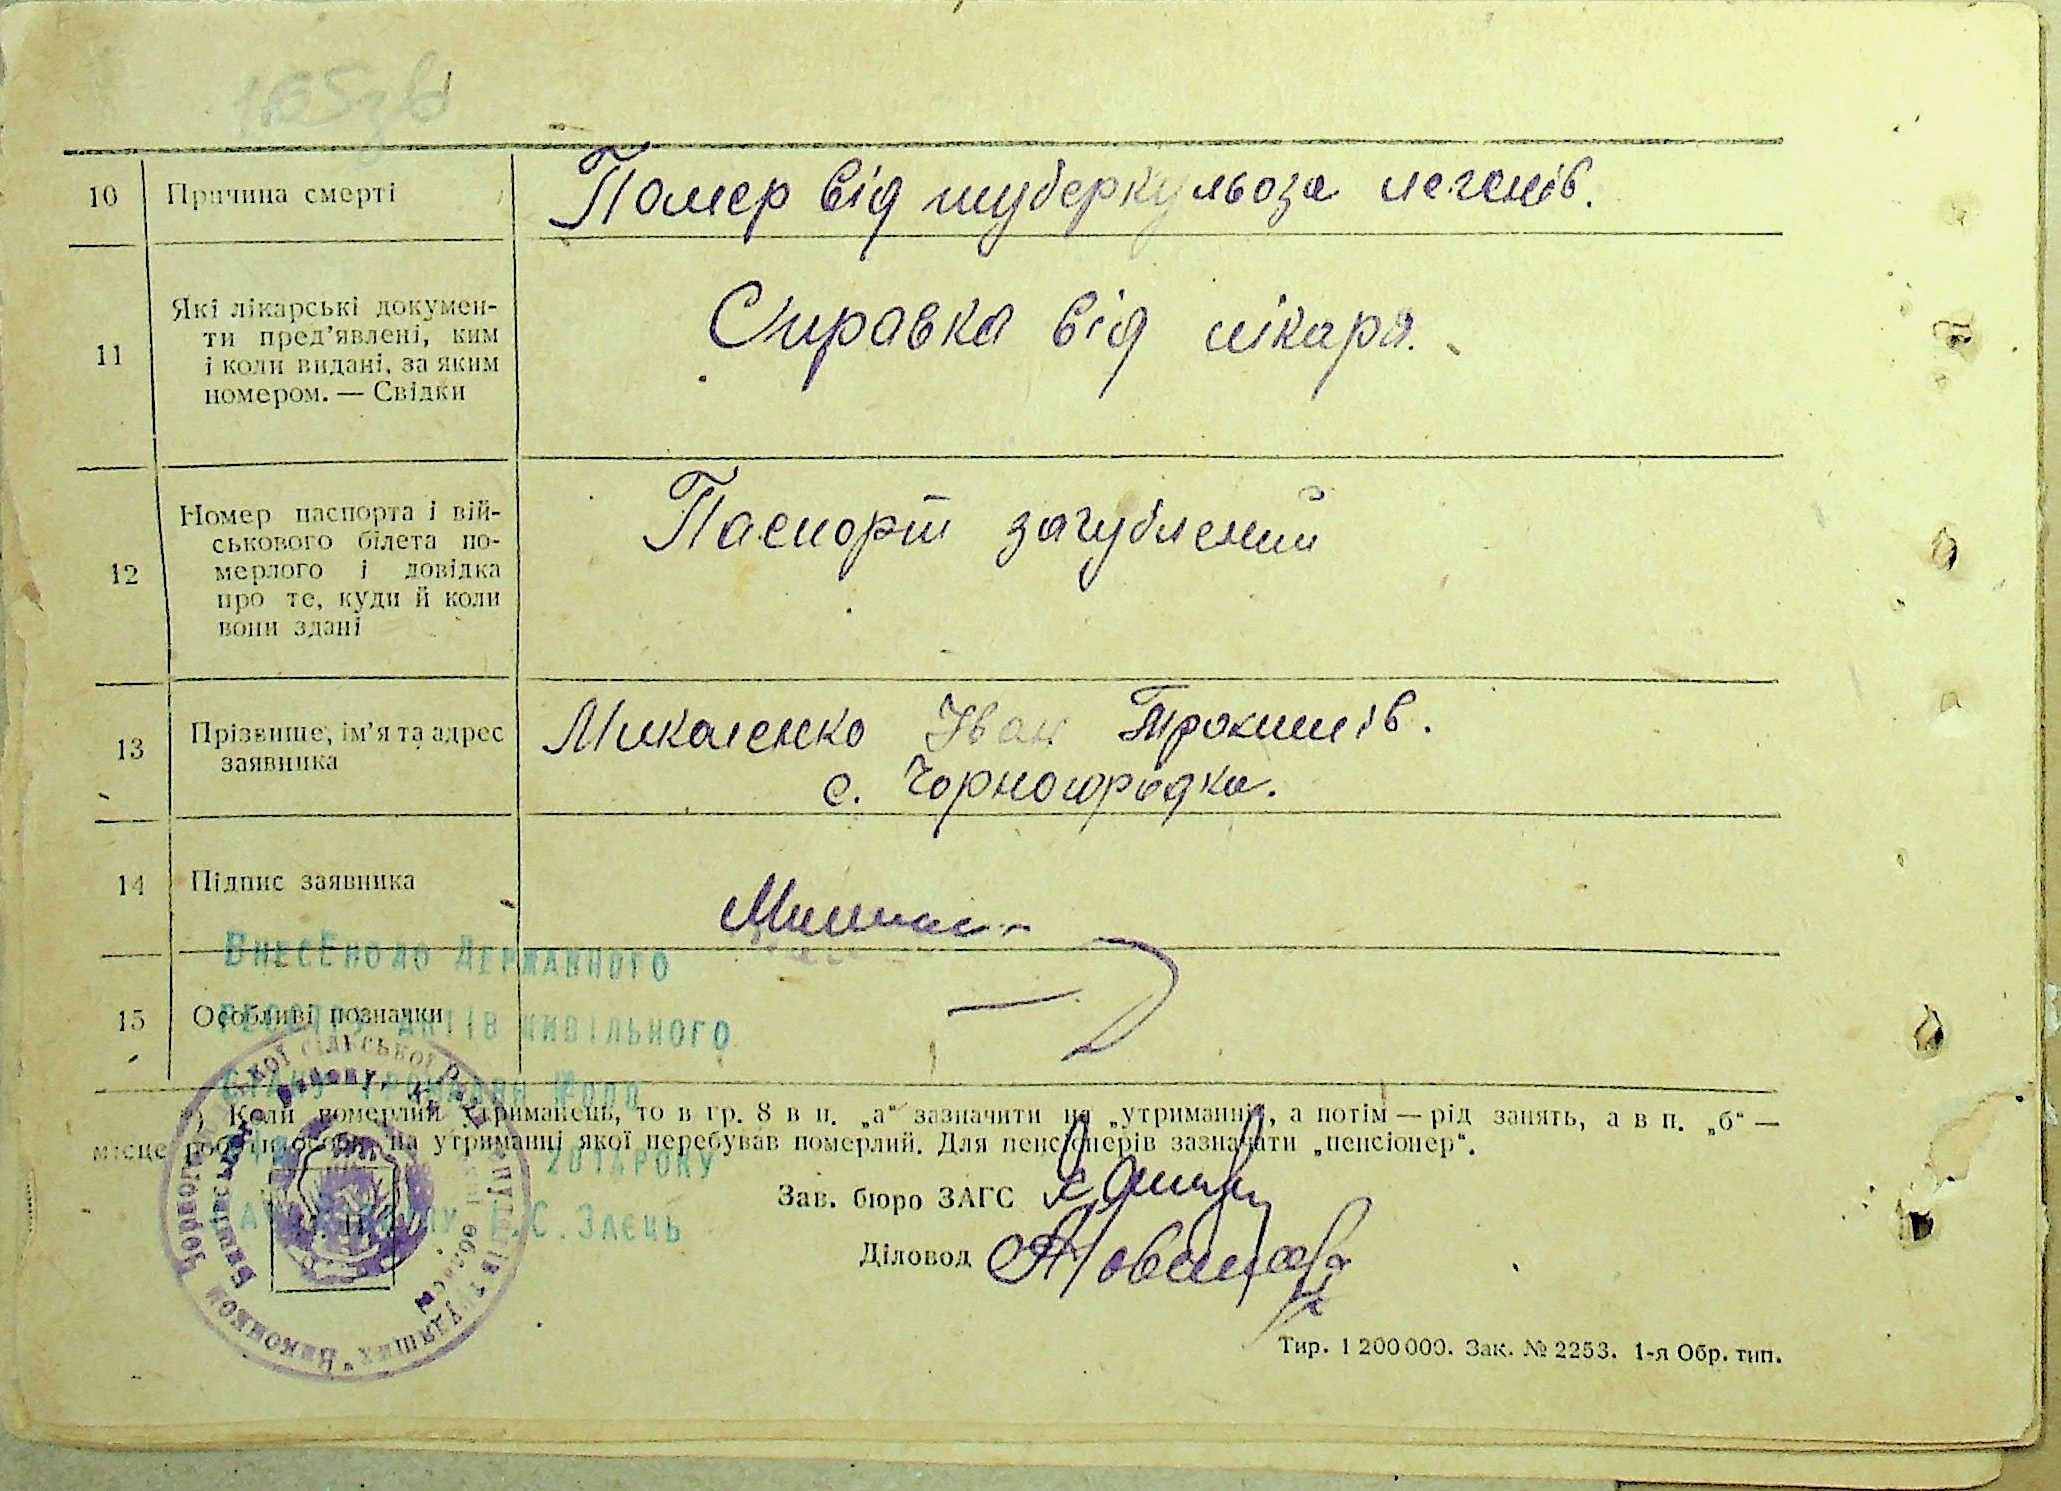 10 Причина смерті Помер від туберкульоза легенів.
11 Які лікарські докумен-
ти пред’явлені, ким
і коли видані, за яким
номером. — Свідки
Справка від лікаря.
12 Номер паспорта і вій-
ськового білета по-
мерлого і довідка
про те, куди й коли
вони здані
Паспорт загублений
13 Прізвище, ім’я та адрес
заявника
Миколенко Іван Трохимів.
с. Чорногородка.
14 Підпис заявника
15 Особливі позначки
Внесено до Державного
реєстру актів цивільного
стану громадян
2014 року
С. Заєць
*) Коли померлий утриманець, то в гр. 8 в п. „а“ зазначити на „утриманні“, а потім — рід занять, а в п. „б“ —
місце роботи особи, на утриманні якої перебував померлий. Для пенсіонерів зазначати „пенсіонер“.
Зав. бюро ЗАГС
Діловод
Тир. 1 200 000. Зак. № 2253. 1-я Обр. тип.